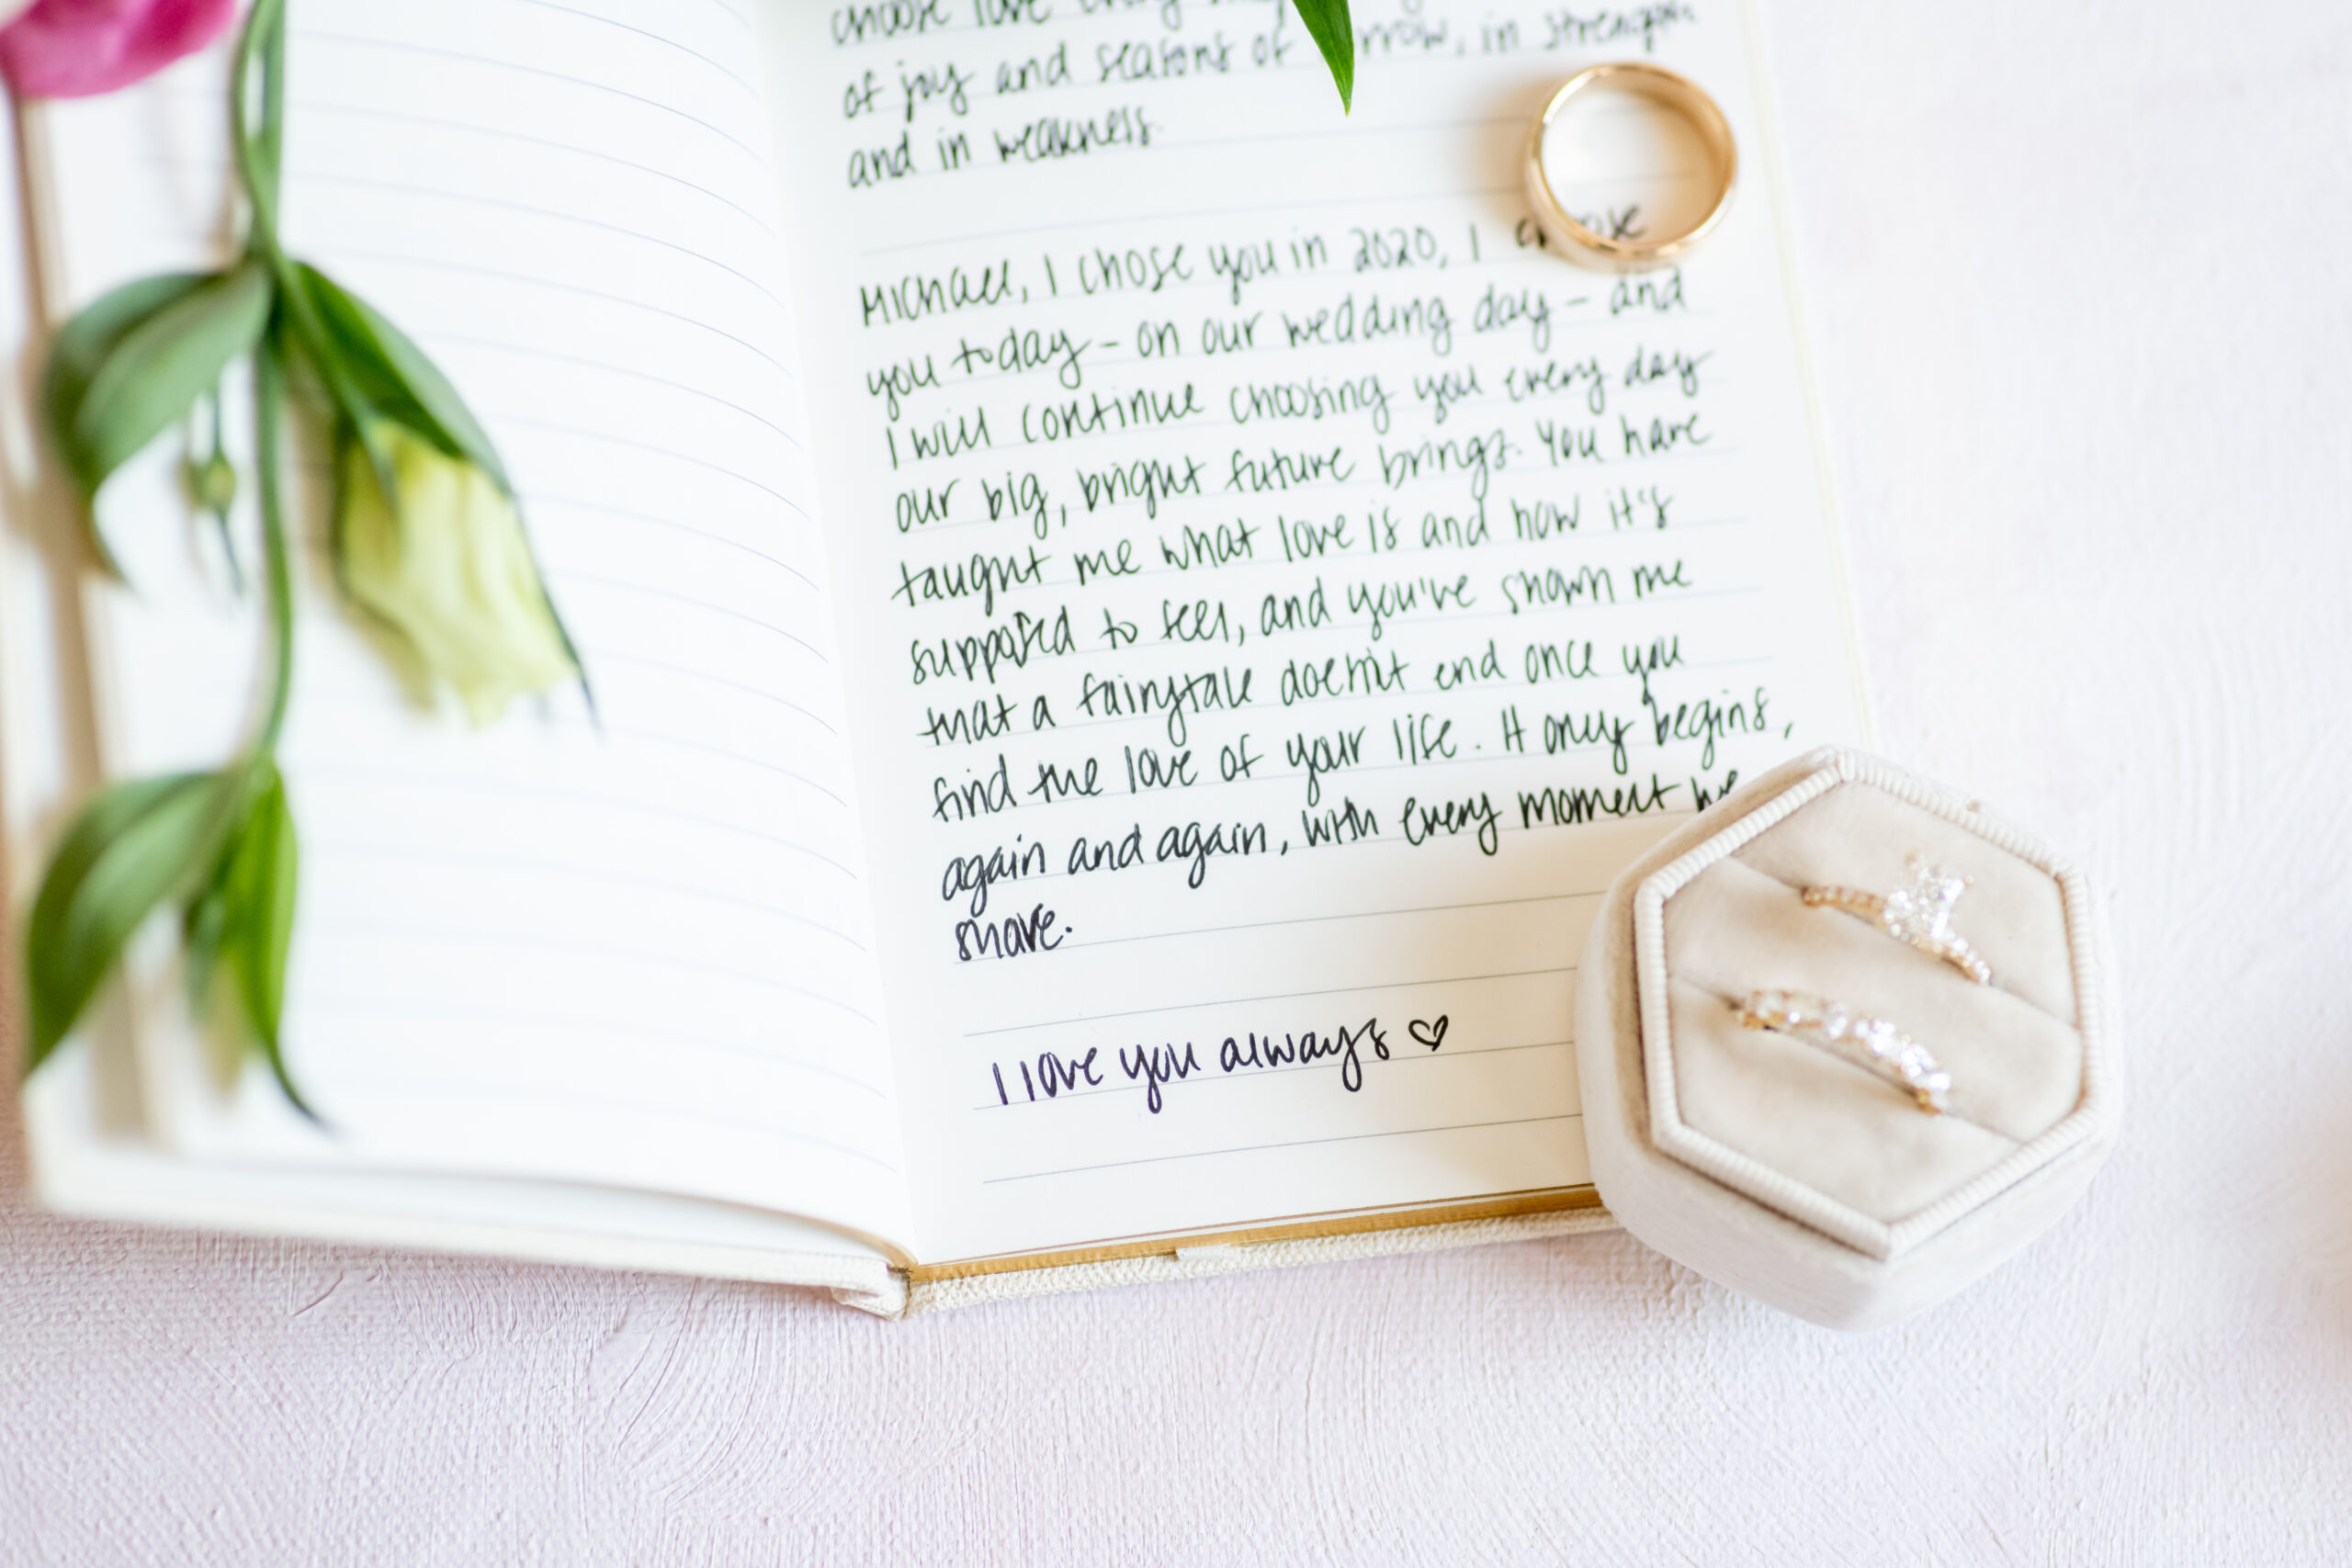 choose love every
of joy and seasons of rrow, in strength
and in weakness.
Michael, I chose you in 2020, I choose
you today - on our wedding day - and
I will continue choosing you every day
our big, bright future brings. You have
taught me what love is and how it's
supposed to feel, and you've shown me
that a fairytale doesn't end once you
find the love of your life. It only begins,
again and again, with every moment we
share.
I love you always ♡